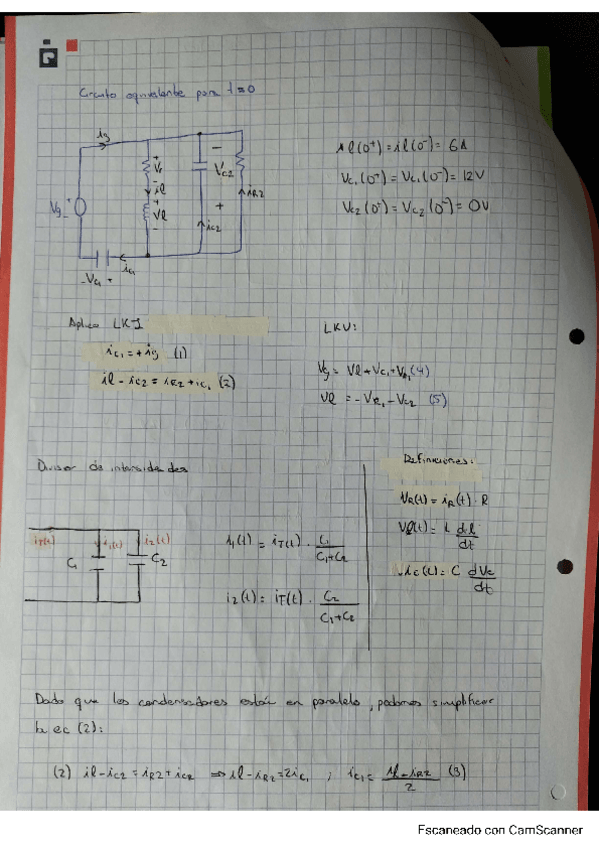 Circuito equivalente para t=0
ig
+
Vg
-
+
Vr
-
il
+
Vl
-
-
V'c2
+
iR2
ic2
ic1
- Vc1 +
il(0⁺) = il(0⁻) = 6A
Vc1(0⁺) = Vc1(0⁻) = 12V
Vc2(0⁺) = Vc2(0⁻) = 0V
Aplico LKI
ic1 = +ig (1)
il - ic2 = iR2 + ic1 (2)
LKV:
Vg = Vl + Vc1 + VR1 (4)
Vl = -VR1 - Vc2 (5)
Divisor de intensidades
iT(t)
i1(t)
i2(t)
C1
C2
i1(t) = iT(t) · C1/(C1+C2)
i2(t) = iT(t) · C2/(C1+C2)
Definiciones:
VR(t) = iR(t) · R
Vl(t) = L dil/dt
ic(t) = C dVc/dt
Dado que los condensadores están en paralelo, podemos simplificar
la ec (2):
(2) il - ic2 = iR2 + ic2 ⇒ il - iR2 = 2ic1 ; ic1 = (il - iR2)/2 (3)
Escaneado con CamScanner